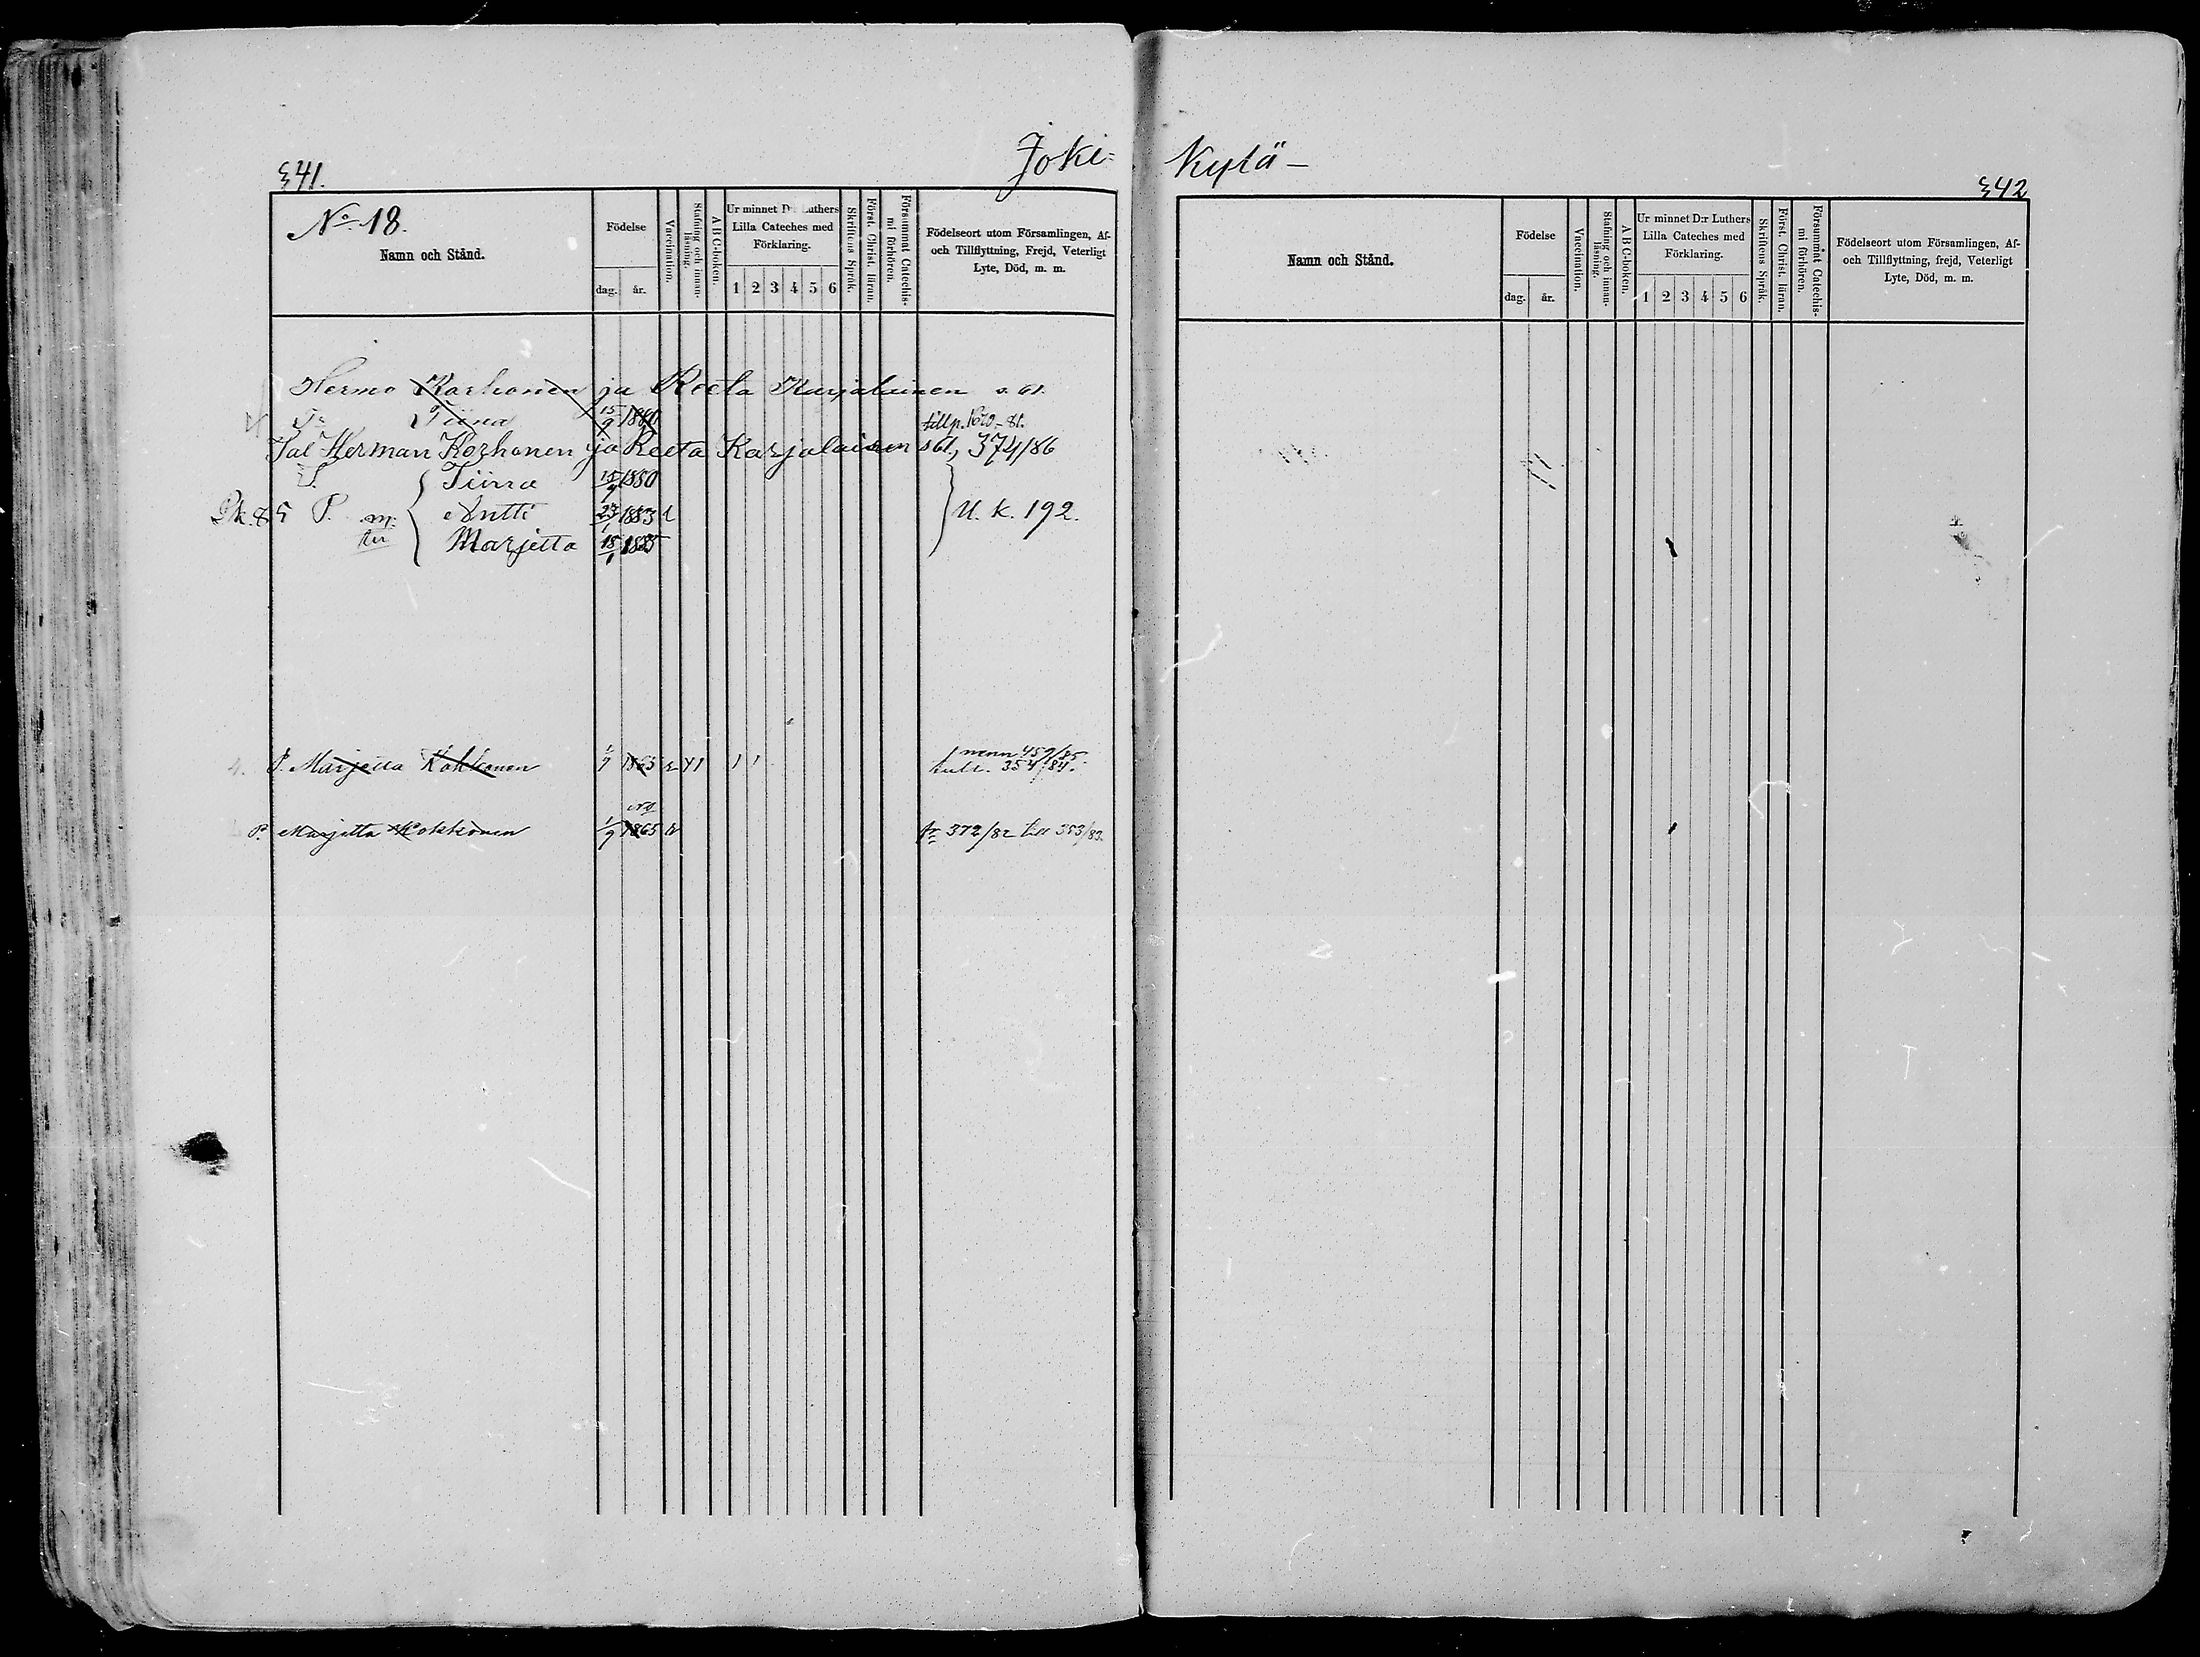 341.
Joki-
Kylä-
342
No 18.
Namn och Stånd.
Födelse
dag. år.
Vaccination.
Stafning och innan-
läsning.
A B C-boken.
Ur minnet D:r Luthers
Lilla Cateches med
Förklaring.
1 2 3 4 5 6
Skriftens Språk.
Först. Christ. läran.
Försummat Catechis-
mi förhören.
Födelseort utom Församlingen, Af-
och Tillflyttning, Frejd, Veterligt
Lyte, Död, m. m.
Hermo Korhonen ja Reeta Karjalainen s. 61.
T. Tiina 15/9 1880
Ial Herman Korhonen ja Reeta Karjalainen s 61, 374/86
T. Tiina 15/9 1880
P. Antti 23/1 1883 U. k. 192.
Marjetta 18/1 1885
P. Marjetta Kokkonen 1/9 1865 1 1 menn 459/85.
tull. 354/84.
P. Marjetta Kokkonen 1/9 1865 fr 372/82 till 353/83.
Namn och Stånd.
Födelse
dag. år.
Vaccination.
Stafning och innan-
läsning.
A B C-boken.
Ur minnet D:r Luthers
Lilla Cateches med
Förklaring.
1 2 3 4 5 6
Skriftens Språk.
Först. Christ. läran.
Försummat Catechis-
mi förhören.
Födelseort utom Församlingen, Af-
och Tillflyttning, frejd, Veterligt
Lyte, Död, m. m.